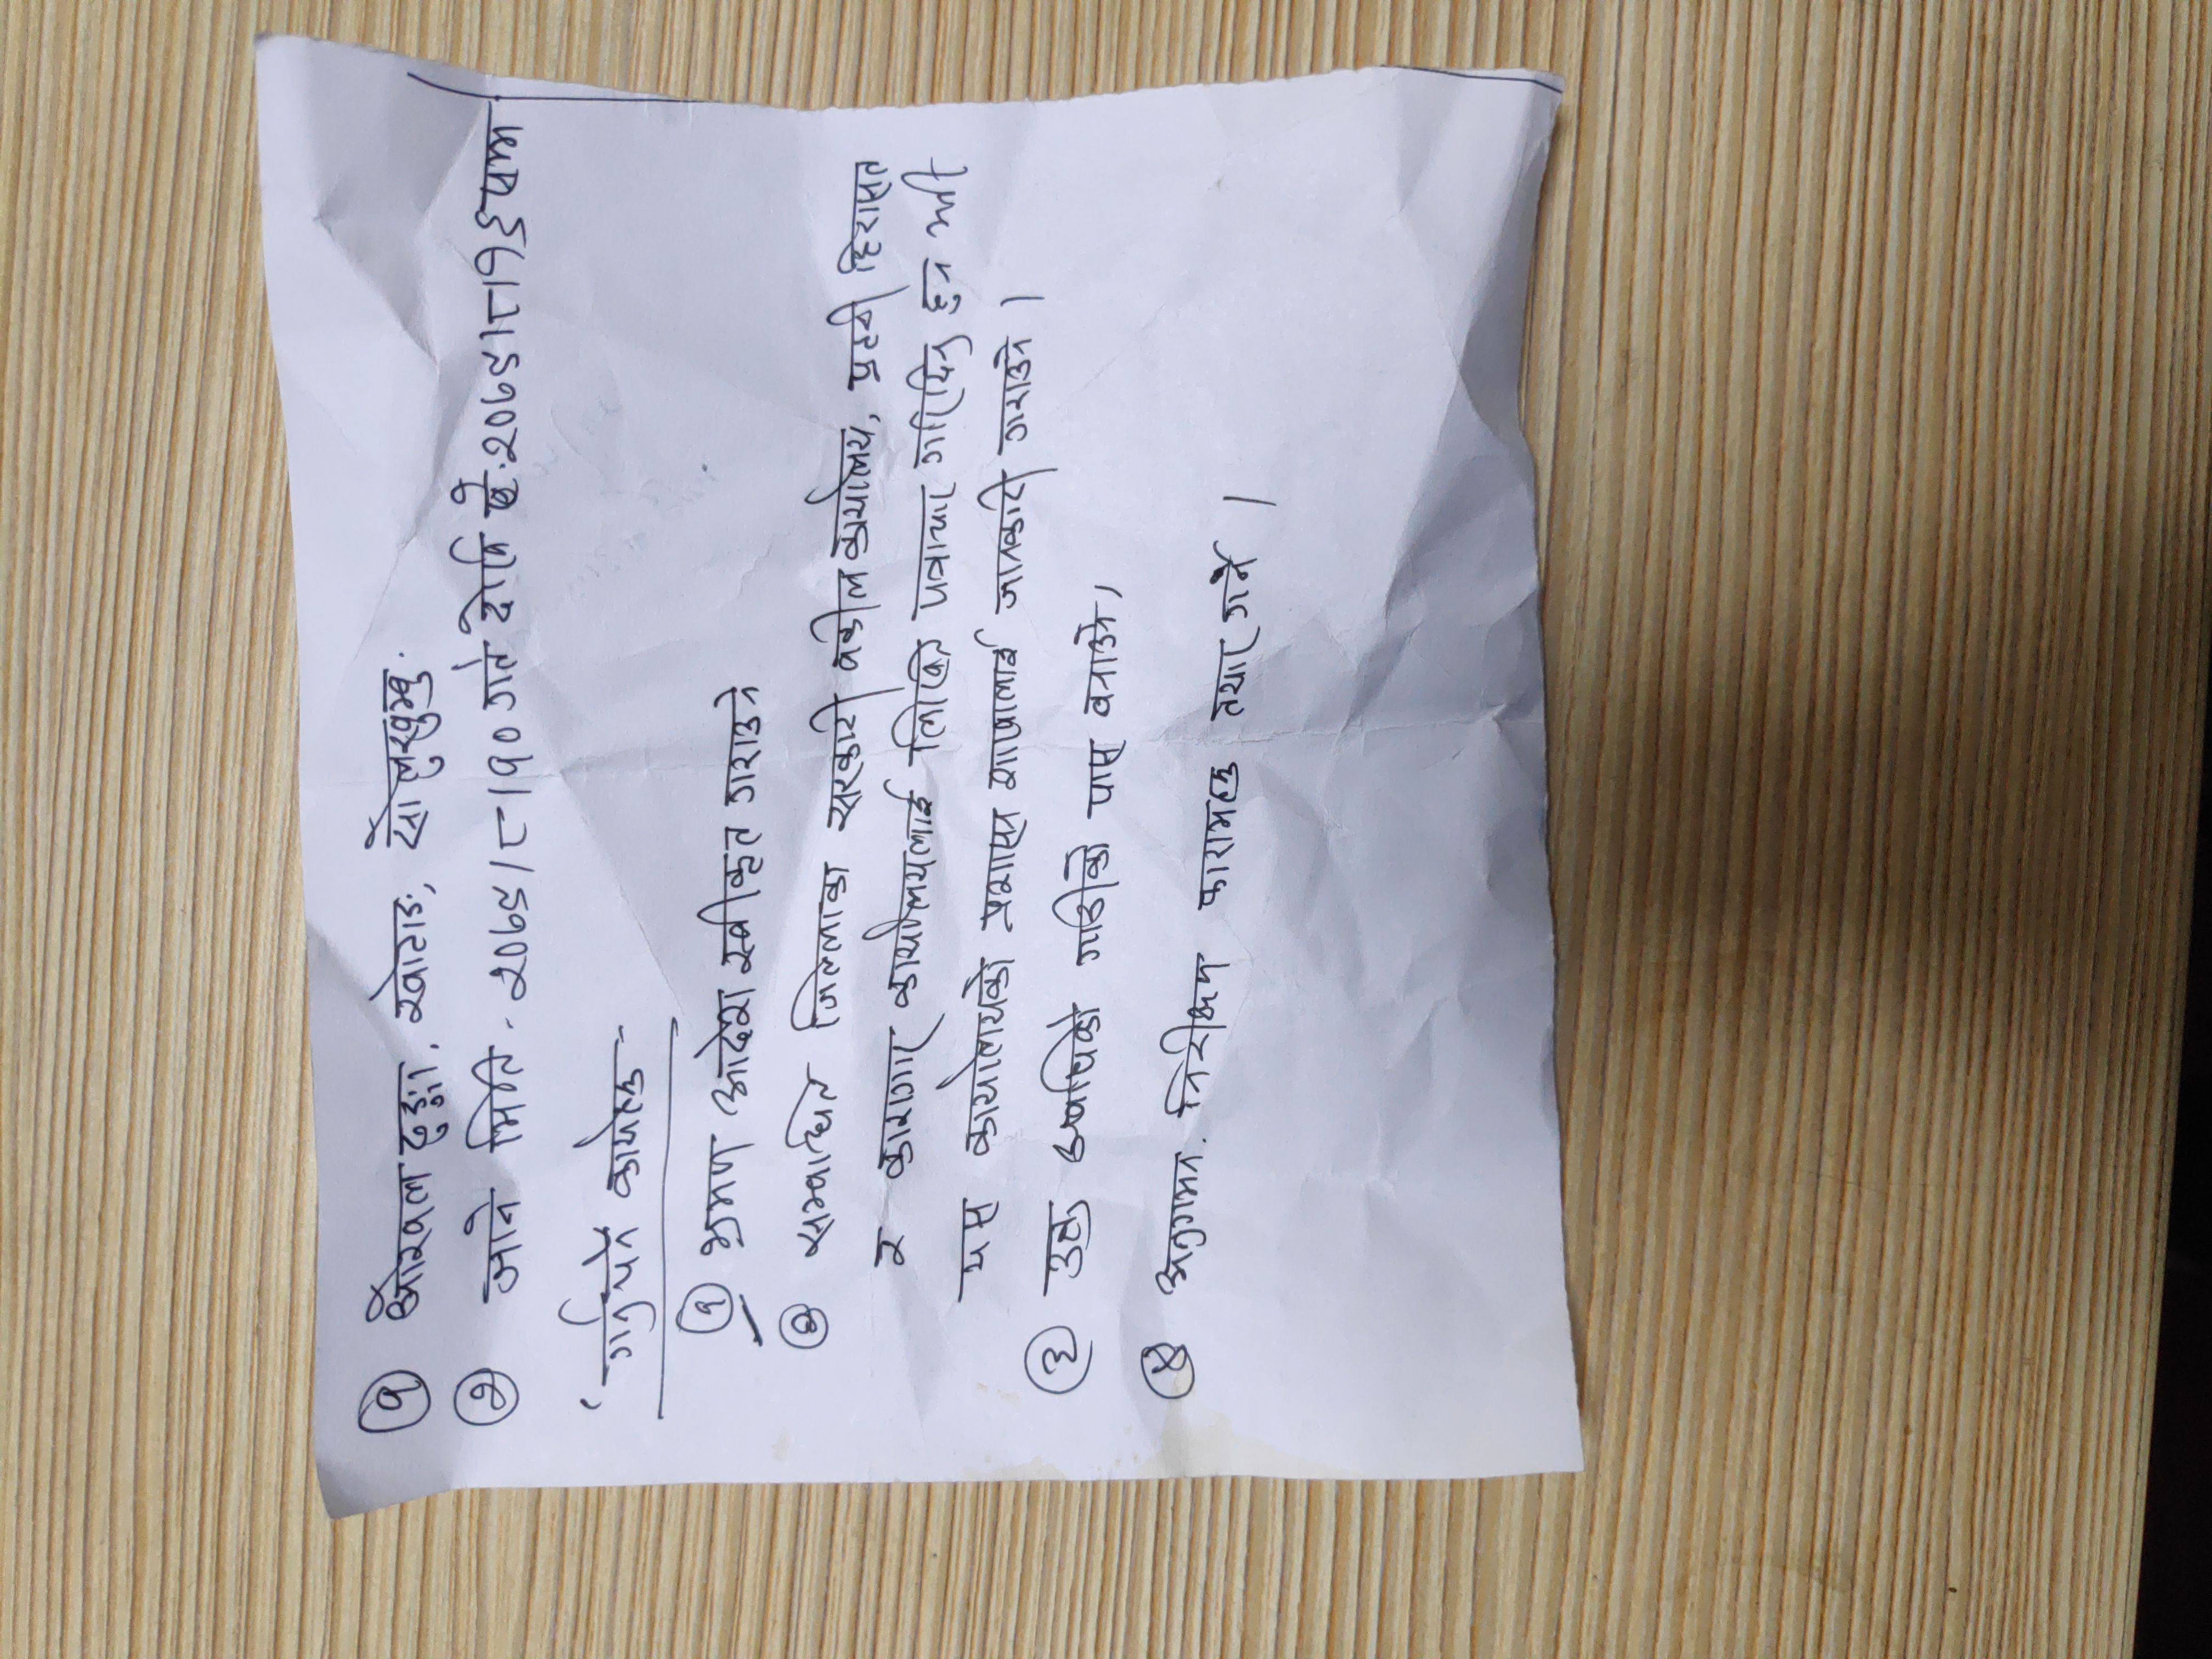 १ ओखलढुङ्गा, खोटाङ, सोलुखुम्बु.
२ जाने मिति - २०७९।८।१० गते देखि २०७९।८।१६ सम्म
गर्नुपर्ने कार्यहरु -
१ भ्रमण आदेश स्वीकृत गराउने
२ सम्बन्धित जिल्लाका सरकारी वकील कार्यालय, प्रहरी हिरासत
र कारागार कार्यालयलाई लिखित पत्राचार गरिदिनु हुन भनी
यस कार्यालयको प्रशासन शाखालाई जानकारी गराउने ।
३ उक्त अवधिको गाडीको पास बनाउने ।
४ अनुगमन. निरीक्षण फारामहरु तयार गर्ने ।